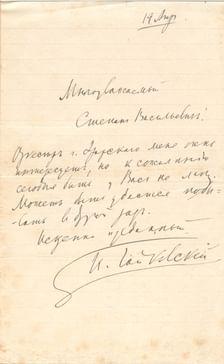 14 Апр.
Многоуважаемый
Степан Васильевич!
Оркестр г. Арусского меня очень
интересует, но к сожалению
сегодня быть у Вас не могу.
Может быть удастся побы-
вать в другой раз.
Искренно преданный
П. Чайковский